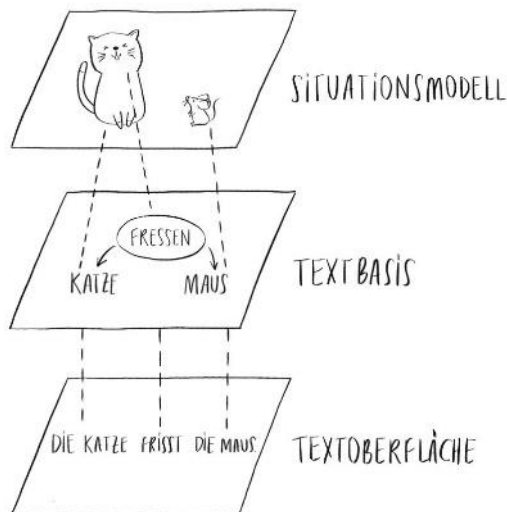 SITUATIONSMODELL
FRESSEN
KATZE MAUS
TEXTBASIS
DIE KATZE FRISST DIE MAUS.
TEXTOBERFLÄCHE